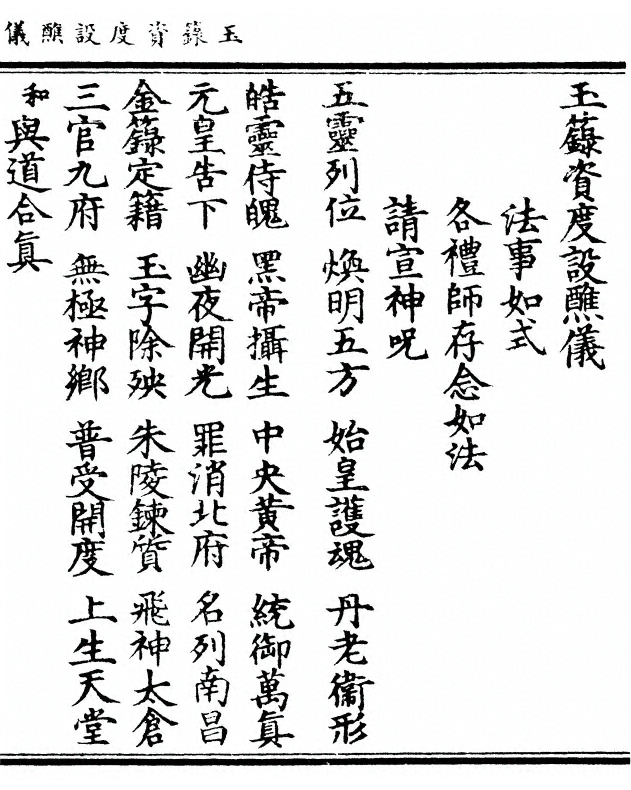 玉籙資度設醮儀
玉籙資度設醮儀
法事如式
各禮師存念如法
請宣神呪
五靈列位 煥明五方 始皇護魂 丹老衞形
皓靈侍魄 黑帝攝生 中央黃帝 統御萬眞
元皇告下 幽夜開光 罪消北府 名列南昌
金籙定籍 玉字除殃 朱陵鍊質 飛神太倉
三官九府 無極神鄉 普受開度 上生天堂
和與道合眞